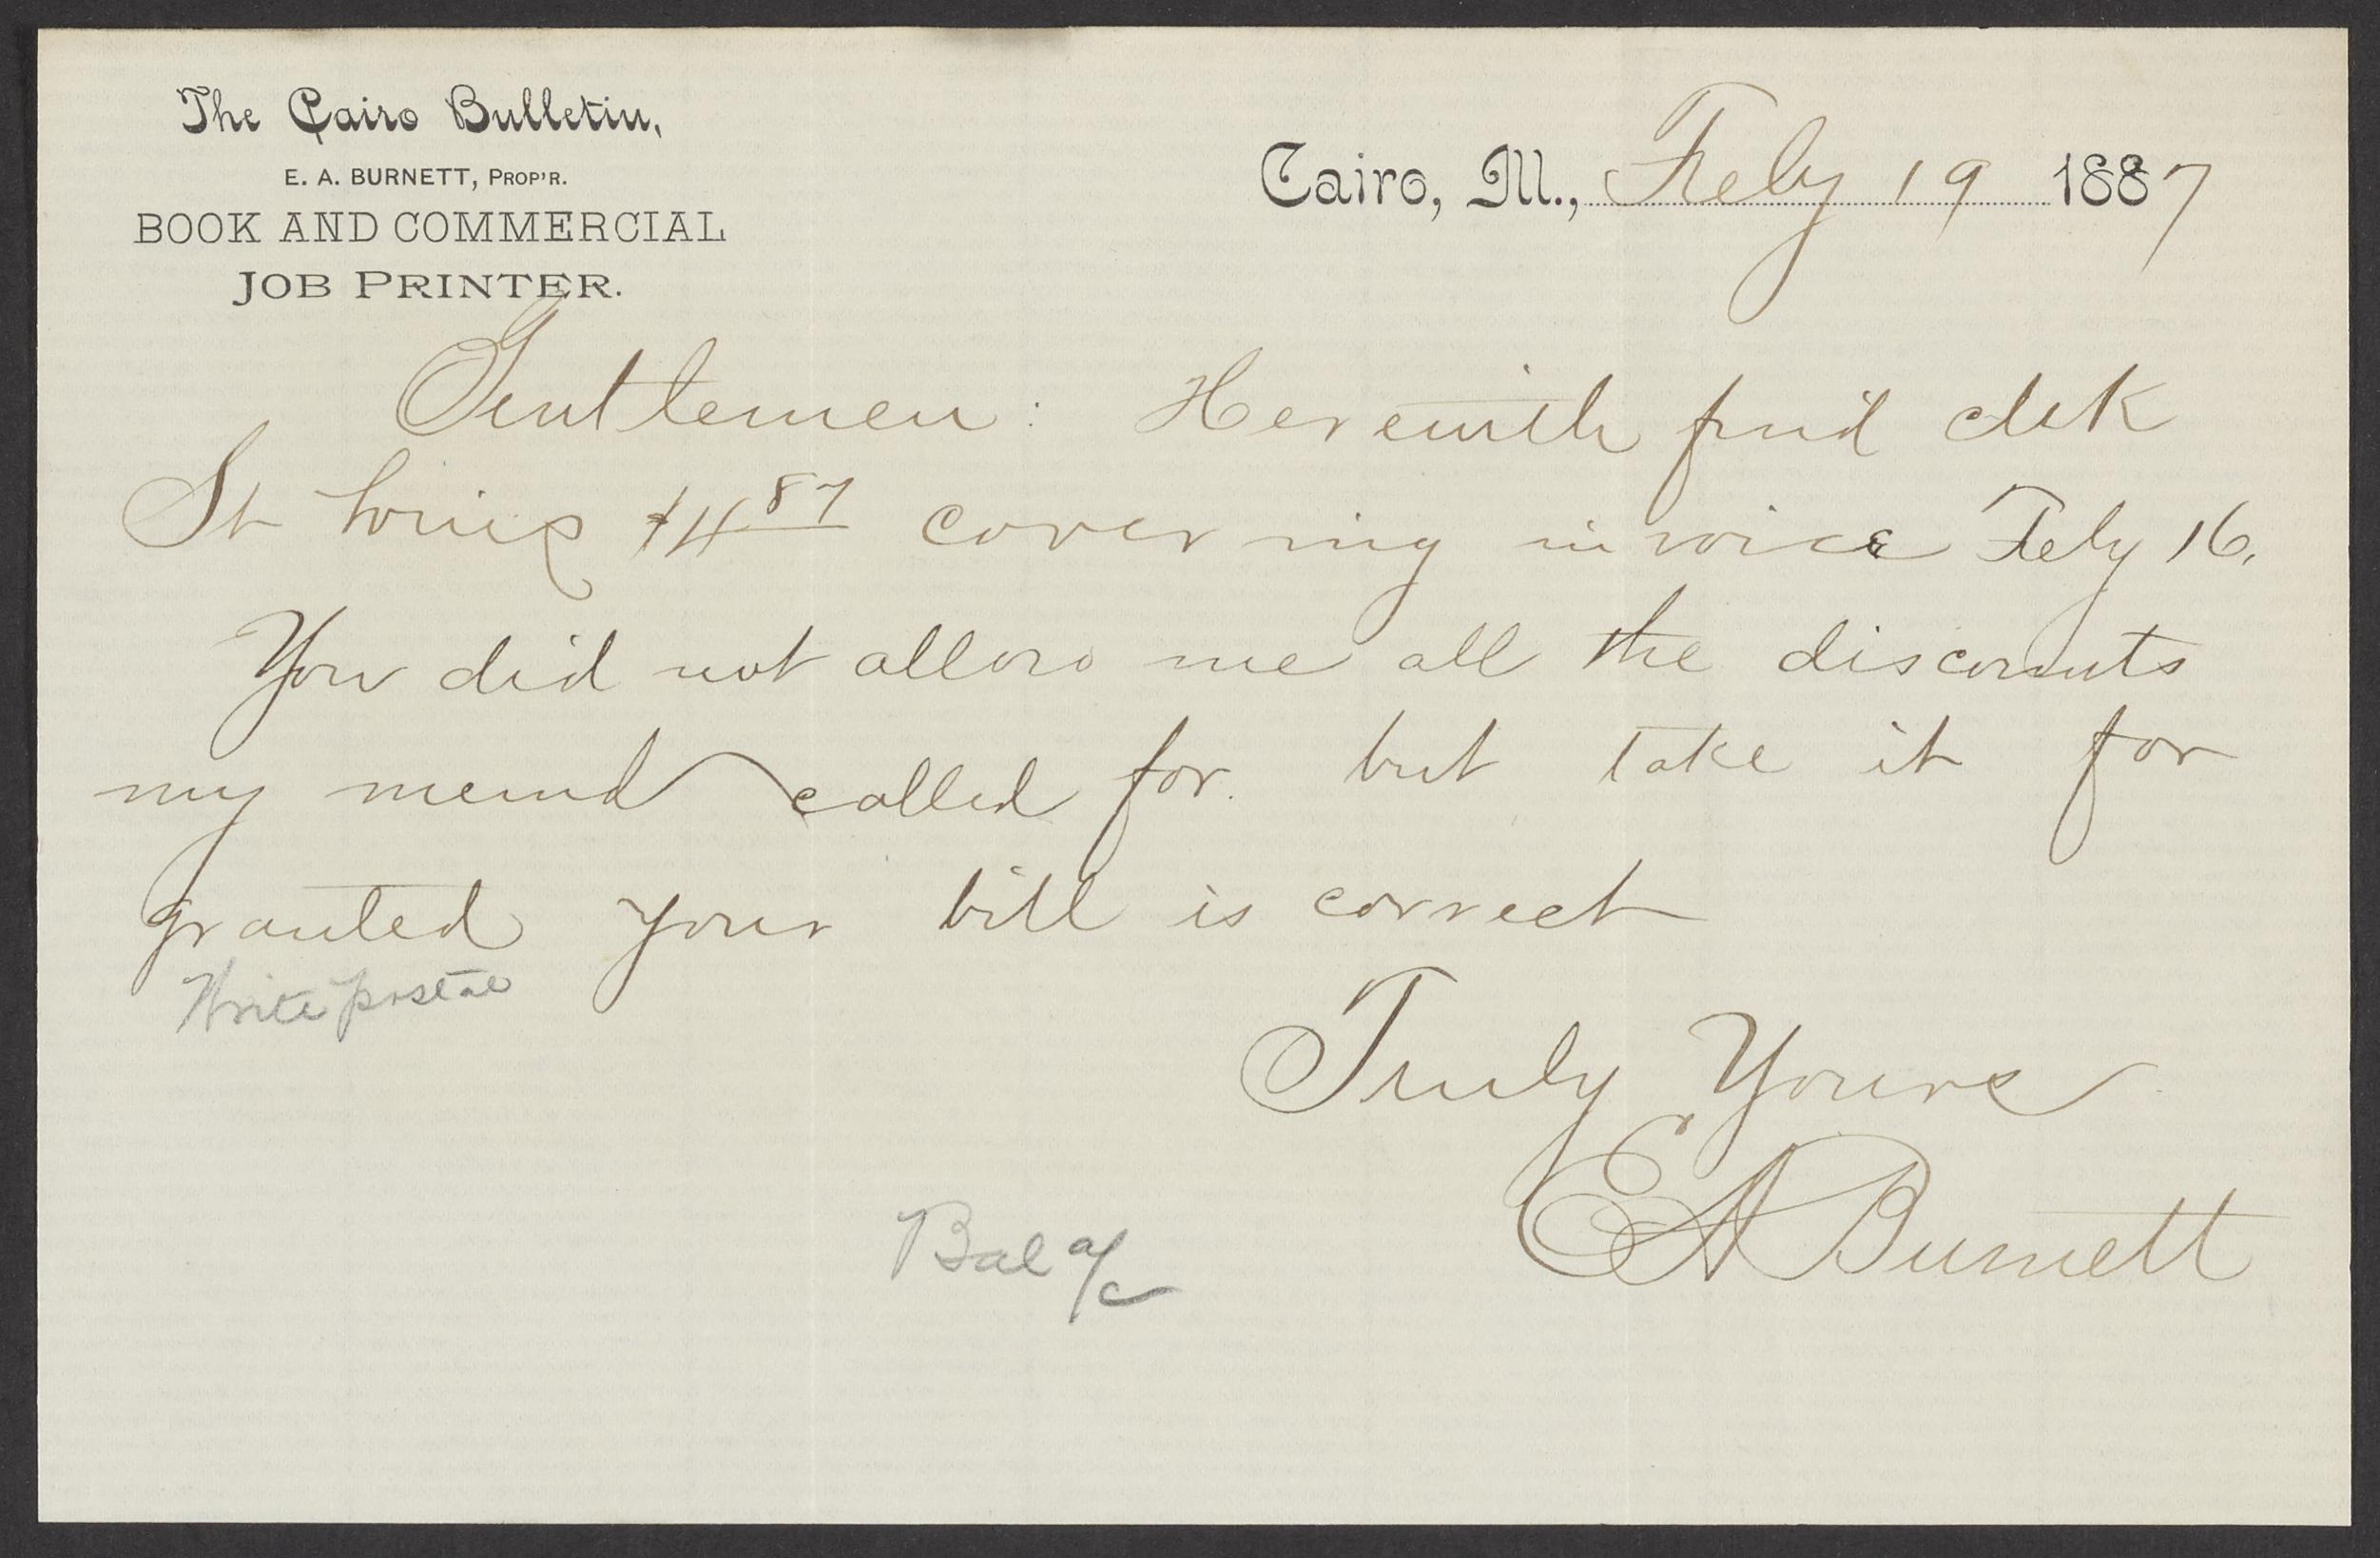 The Cairo Bulletin,
E. A. BURNETT, PROP'R.
BOOK AND COMMERCIAL
JOB PRINTER.
Cairo, Ill., Feby 19 1887
Gentlemen: Herewith find chk
St Louis $4 87 covering invoice Feby 16.
You did not allow me all the discounts
my memd called for. but take it for
granted your bill is correct
Write postal
Truly Yours
EA Burnett
Bal a/c